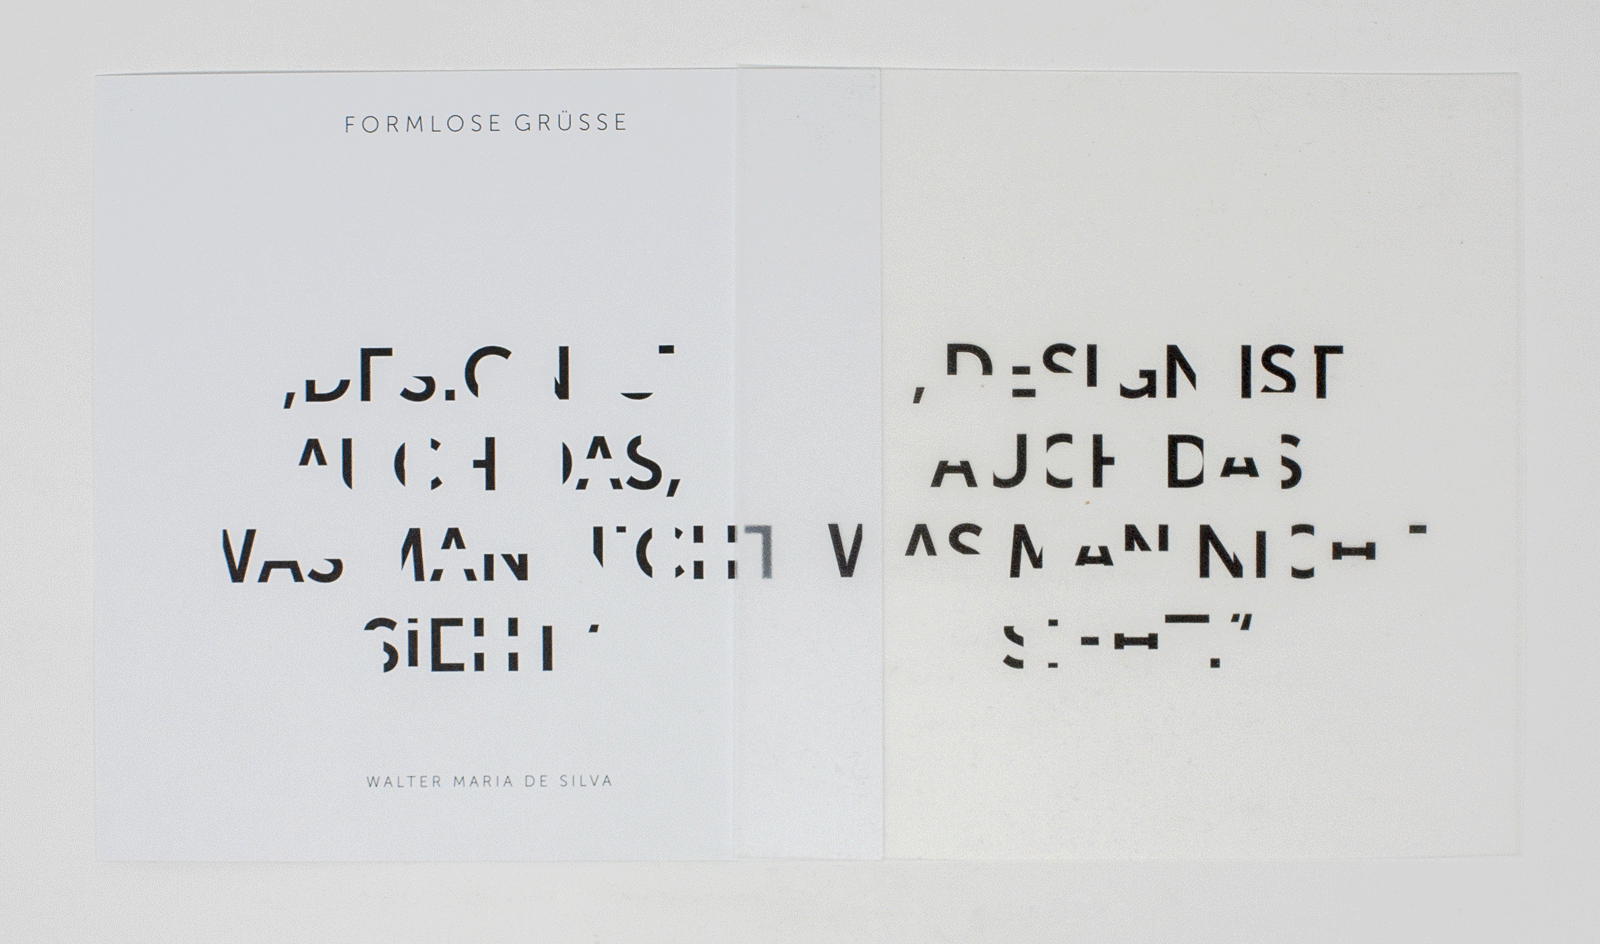 FORMLOSE GRÜSSE
„DESIGN IST
AUCH DAS,
WAS MAN NICHT
SIEHT.“
WALTER MARIA DE SILVA
„DESIGN IST
AUCH DAS
WAS MAN NICHT
SIEHT.“